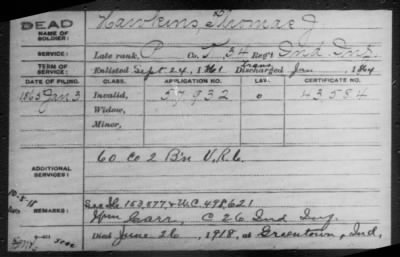 DEAD
NAME OF SOLDIER:
Hawkins, Thomas J
SERVICE:
Late rank, P Co. I, 34 Reg't Ind Inf.
TERM OF SERVICE:
Enlisted Sept 24, 1861 Trans. Discharged Jan , 1864
DATE OF FILING. CLASS. APPLICATION NO. LAW. CERTIFICATE NO.
1865 Jan 3 Invalid, 57,932 o 43,584
Widow,
Minor,
ADDITIONAL SERVICES:
60 Co 2 B'n V.R.C.
REMARKS:
See 153,077 & W.C. 498621
Wm Carr, C 26 Ind Inf.
Died June 26, 1918, at Greentown, Ind.